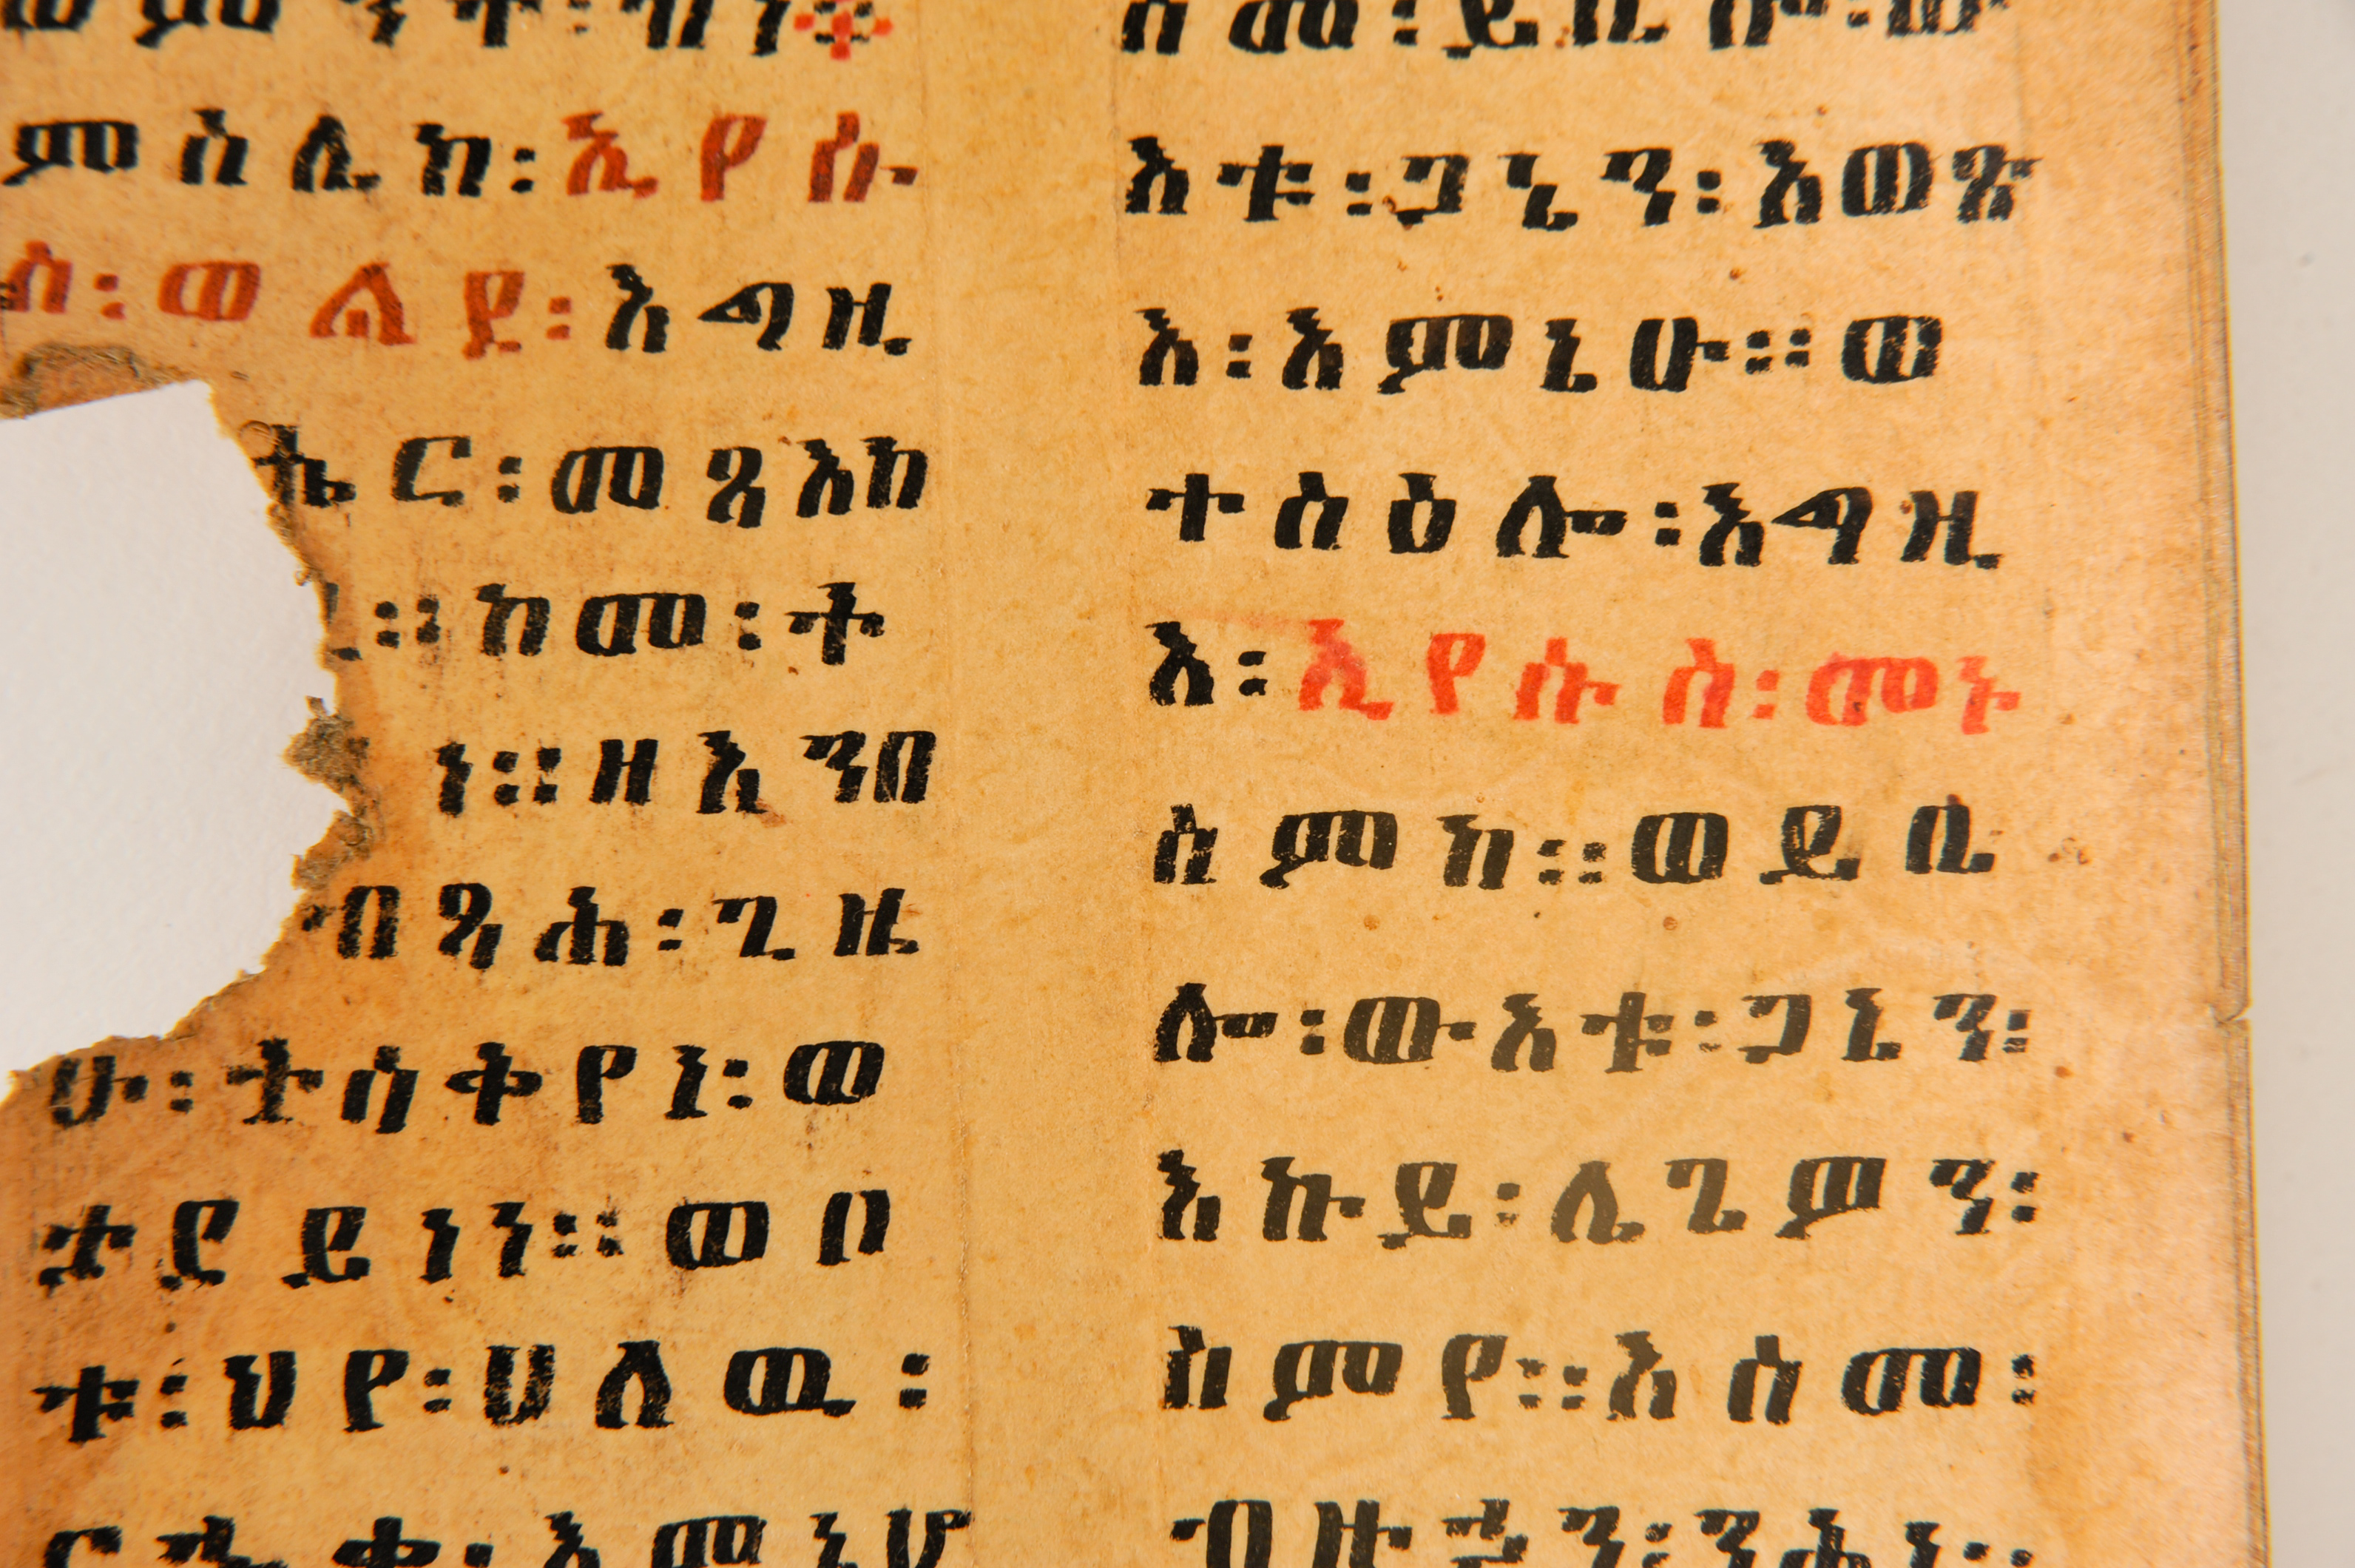 ምስሌከ፡ኢየሱ
ስ፡ወልደ፡እግዚ
ኄር፡መጻእከ
፡፡ከመ፡ት
ነ፡፡ዘእንበ
ብጻሕ፡ጊዜ
ሁ፡ተሰቅየነ፡ወ
ታደይነነ፡፡ወቦ
ቱ፡ህየ፡ሀለዉ፡
እቱ፡ጋኔን፡እወጽ
እ፡እምኔሁ፡፡ወ
ተስዕሎ፡እግዚ
እ፡ኢየሱስ፡መኑ
ስምከ፡፡ወይቤ
ሎ፡ውእቱ፡ጋኔን፡
እኩይ፡ሌጌዎን፡
ስምየ፡፡እስመ፡
ብዙኃን፡ንሕነ፡፡